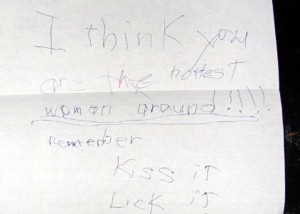 I think you
are the hottest
woman around!!!!!
remember
Kiss it
Lick it